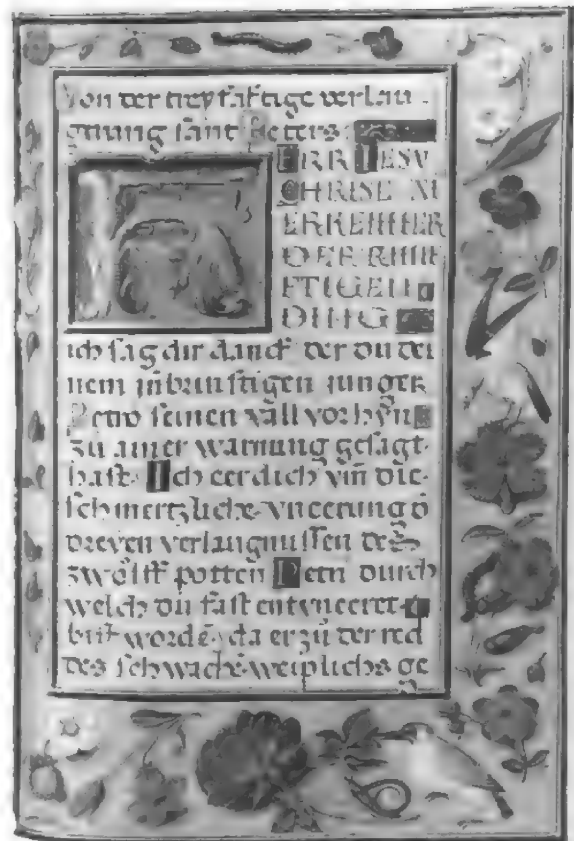 Von der treyfaltige verlaug
gnung sant Peters
HERR IESV
CHRISE XI
ERKENNER
DER KHINF
FTIGEN
DING
ich sag dir danck der du dei
nem inbrunstigen junger
Petro seinen vall vorhyn
zu ainer warnung gesagt
hast. Ich eer dich vm die
schmertzliche vneerung d
dreyen verlaugnussen des
zwolff potten Petri durch
welch du fast entvneeret
bist worde, da er zu der red
des schwache weiplichs ge